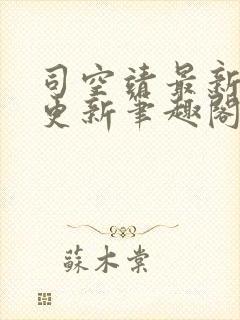 司空靖最新
更新笔趣阁
蘇木棠